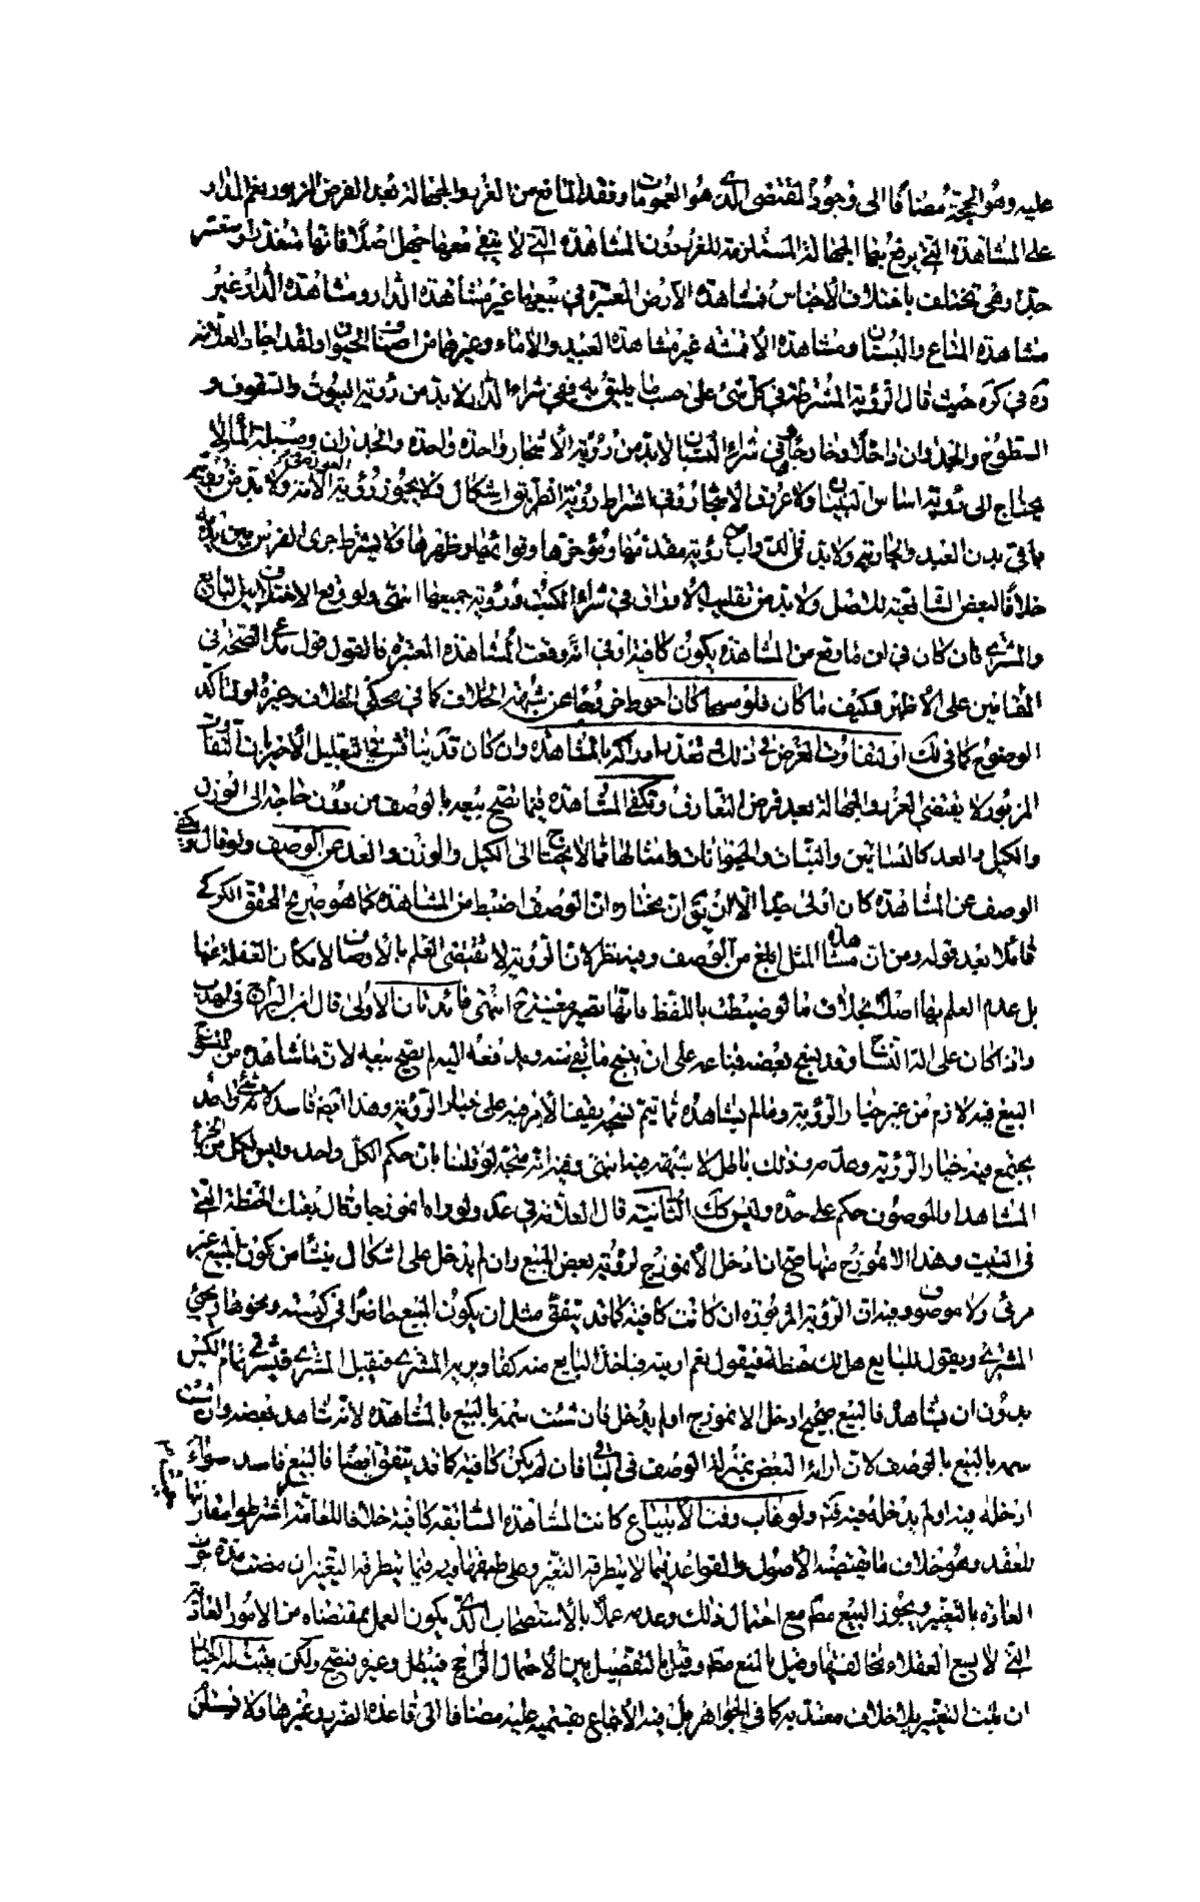 عليه وهو الحجة مضافا الى وجود المقتضى الذى هو العمومات وفقد المانع من الغرر والجهالة بعد الفرض المزبور نعم المدار
على المشاهدة التى يرتفع بها الجهالة المستلزمة للغرر دون المشاهدة التى لا يبقى معها جهل اصلا فانها متعذرة او متعسرة
جدا وهى تختلف باختلاف الاجناس فمشاهدة الارض المعتبرة فى بيعها غير مشاهدة الدار ومشاهدة الدار غير
مشاهدة المتاع والبستان ومشاهدة الأقمشه غير مشاهدة العبيد والاماء وغيرها من اصناف الحيوان ولقد اجاد العلامة
ره فى كره حيث قال الرؤية المشترطة فى كل شئ على حسب ما يليق به ففى شراء الدار لا بد من رؤية البيوت والسقوف و
السطوح والجدران داخلا وخارجا وفى شراء البستان لا بد من رؤية الاشجار واحدة واحدة والجدران ومسيلة الماء ولا
يحتاج الى رؤية اساس البنيان ولا عروق الاشجار وفى اشتراط رؤية الطريق اشكال ولا يجوز رؤية العورة من الامة ولا بد من رؤية
باقى بدن العبد والجارية ولا بد فى الدواب من رؤية مقدمها ومؤخرها وقوائمها وظهرها ولا يشترط جرى الفرس بين يديه
خلافا لبعض الشافعية ولا بد من تقليب الاوراق فى شراء الكتب ورؤية جميعها انتهى ولو وقع الاختلاف بين البايع
والمشترى فان كان فى ان ما وقع من المشاهدة يكون كافيا او فى انه وقعت المشاهدة المعتبرة فالقول قول مدعى الصحة فى
المقامين على الاظهر وكيف ما كان فلو كان احوط خروجا عن شبهة الخلاف كما فى محكى الخلاف وغيره او لتاكد
الوضوح كما فى لك او لتفاوت الغرض فى ذلك وتعذر ادراكه بالمشاهدة وان كان قد يناقش فى التعليل الأخير بان التفاوت
المزبور لا يقتضى الغرر والجهالة بعد فرض التعارف وتكفى المشاهدة فيما تصح بيعه بالوصف من دون حاجة الى الوزن
والكيل والعد كالبساتين والنبات والحيوانات وامثالها مما لا يحتاج الى الكيل والوزن والعد عن الوصف ولو قال ويكفى
الوصف عن المشاهدة كان اولى جدا الا ان يق ان مختاره ان الوصف اضبط من المشاهدة كما هو صريح المحقق الكركى
قائلا بعد قوله ومن ان مشاهدة المثل ابلغ من الوصف وفيه نظر لان الرؤية لا تقتضى العلم بالاوصاف لامكان الغفلة عنها
بل عدم العلم بها اصلا بخلاف ما لو ضبطت باللفظ فانها تصير معينة ح انتهى فائدتان الأولى قال ابن البراج فى المهذب
واذا كان على الة النساج وقد نسج بعضه فباعه على ان ينسج ما بقى منه ويدفعه اليه لم يصح بيعه لان ما شاهده من المنسوج
البيع فيه لازم من غير خيار الرؤية وما لم يشاهده مما يتم نسجه يقف الامر فيه على خيار الرؤية وهذا البيع فاسد لانه شئ واحد
يجتمع فيه خيار الرؤية وعدمه وذلك باطل لا شبهة فيه انتهى وفيه انه متجه لو قلنا بان حكم الكل واحد وليس لكل من الجزء
المشاهد والموصوف حكم على حده وليس كك الثانية قال العلامة فى عد ولو اراه انموذجا وقال بعتك الحنطة التى
فى البيت وهذا الانموذج منها صح ان ادخل الأنموذج لرؤية بعض المبيع وان لم يدخل على اشكال ينشأ من كون المبيع غير
مرئى ولا موصوف وفيه ان الرؤية المزبورة ان كانت كافية كما قد يتفق مثل ان يكون المبيع حاضرا فى كيسه ونحوها ويجئ
المشترى ويقول للبايع هل لك حنطة فيقول نعم اريته فياخذ البايع منه كفا ويريه المشترى فيقبل المشترى فيشترى تمام الكيس
بدون ان يشاهد فالبيع صحيح ادخل الانموذج او لم يدخل فان شئت سمه بالبيع بالمشاهدة لانه شاهد بعضه وان شئت
سمه بالبيع بالوصف لان ارائة البعض بمنزلة الوصف فى الباقى فان لم يكن كافية كما قد يتفق ايضا فالبيع فاسد سواء
ادخله فيه او لم يدخله فيه ولو غاب وقت الابتياع كانت المشاهدة السابقة كافية خلافا للعامة اشترطوا مقارنتها
للعقد وهو خلاف ما يقتضيه الأصول والقواعد فيما لا يتطرقه التغير وعلى طبقها وبه فيما يتطرقه التغير ان مضت مدة جرت
العادة بالتغير ويجوز البيع مط مع احتمال ذلك وعدمه عملا بالاستصحاب الذى يكون العمل بمقتضاه من الامور العادية
التى لا يسع العقلاء مخالفتها وقيل بالمنع مط وقيل بالتفصيل بين الاحتمال الراجح فيبطل وغيره فيصح ولكن يثبت له الخيار
ان ثبت التغير بلا خلاف معتد به كما فى الجواهر بل فيه الاجماع بقسميه عليه مضافا الى قاعدة الضرر وغيرها ولا